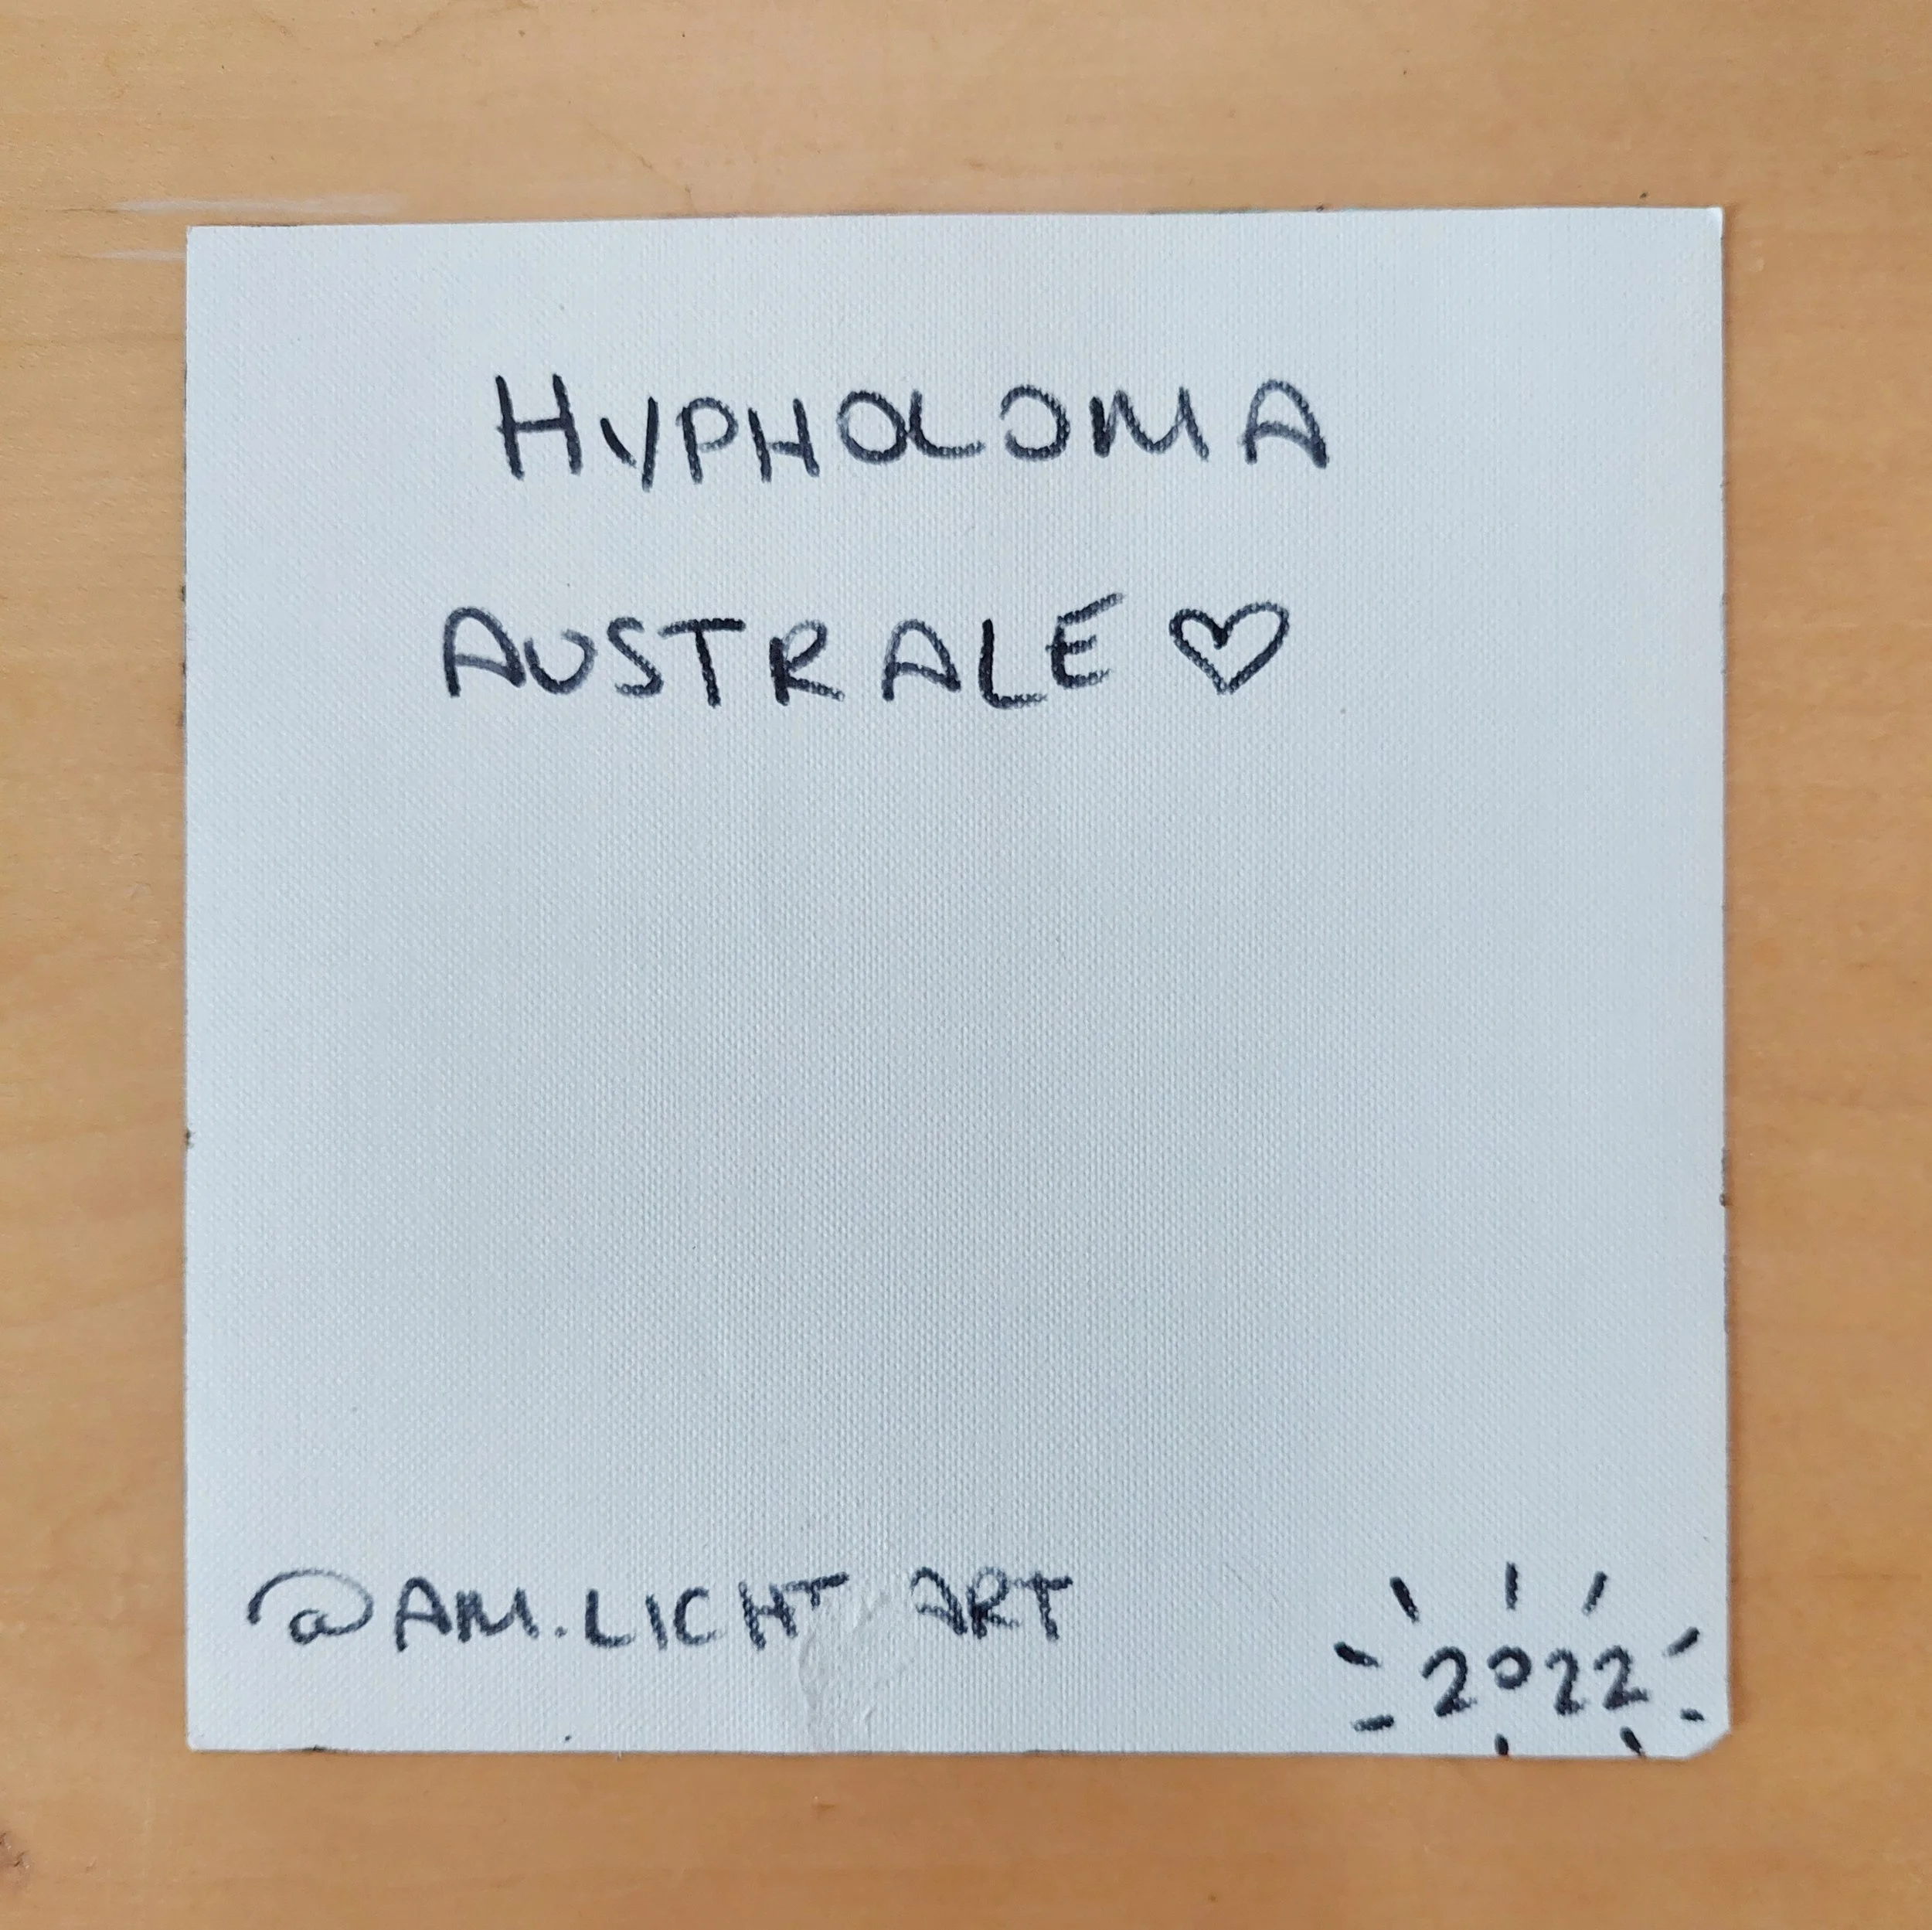 HYPHOLOMA
AUSTRALE ♡
@AM.LICHT ART
2022